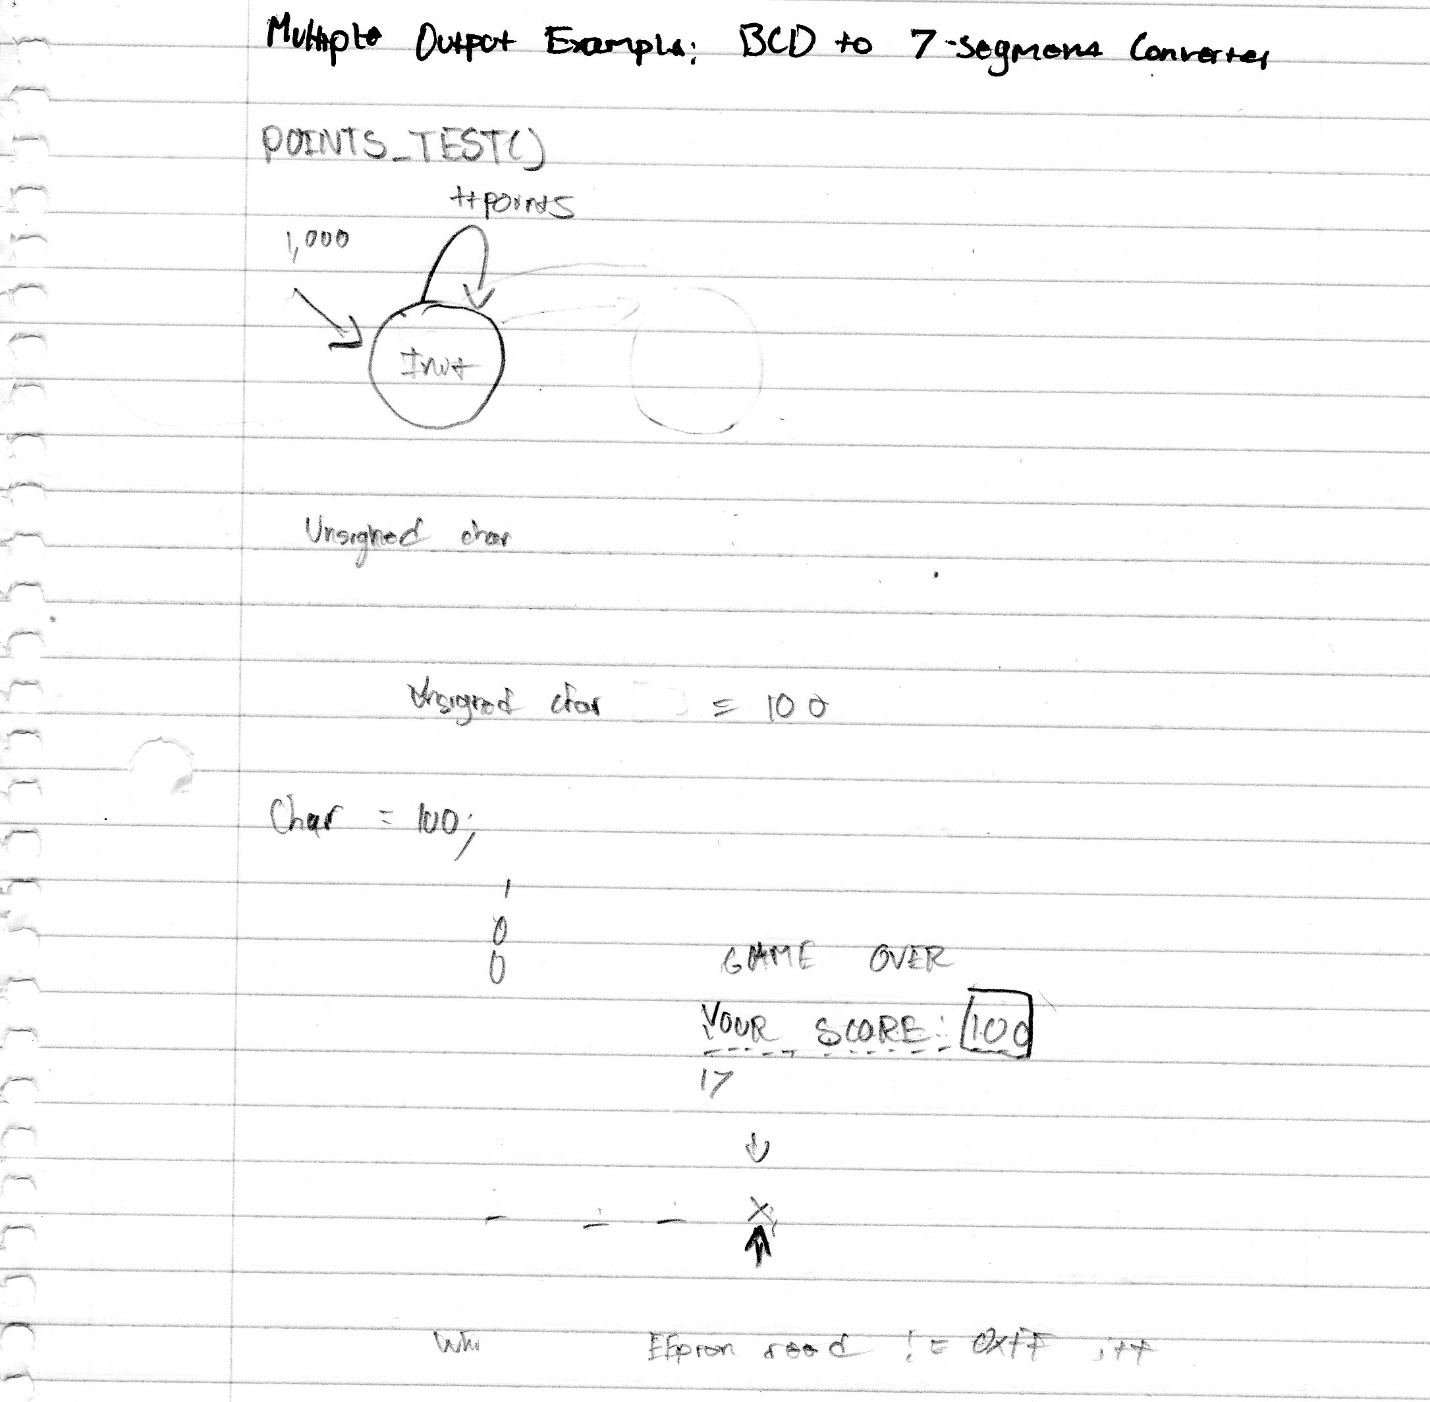 Multiple Output Example: BCD to 7-segment Converter
POINTS_TEST()
++points
1,000
Init
Unsigned char
Unsigned char = 100
Char = 100;
1
0
0
GAME OVER
YOUR SCORE: 100
17
X
Whi EEprom read != 0xFF ;++